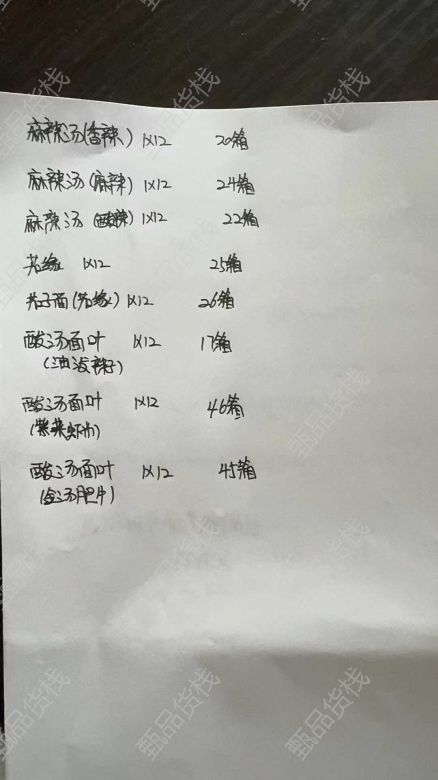 麻辣汤(香辣) 1X12 20箱
麻辣汤(麻辣) 1X12 24箱
麻辣汤(酸辣) 1X12 22箱
1X12 25箱
1X12 26箱
酸汤面叶 1X12 17箱
(油泼辣子)
酸汤面叶 1X12 46箱
(紫菜虾巾)
酸汤面叶 1X12 45箱
(金汤肥牛)
甄品货栈